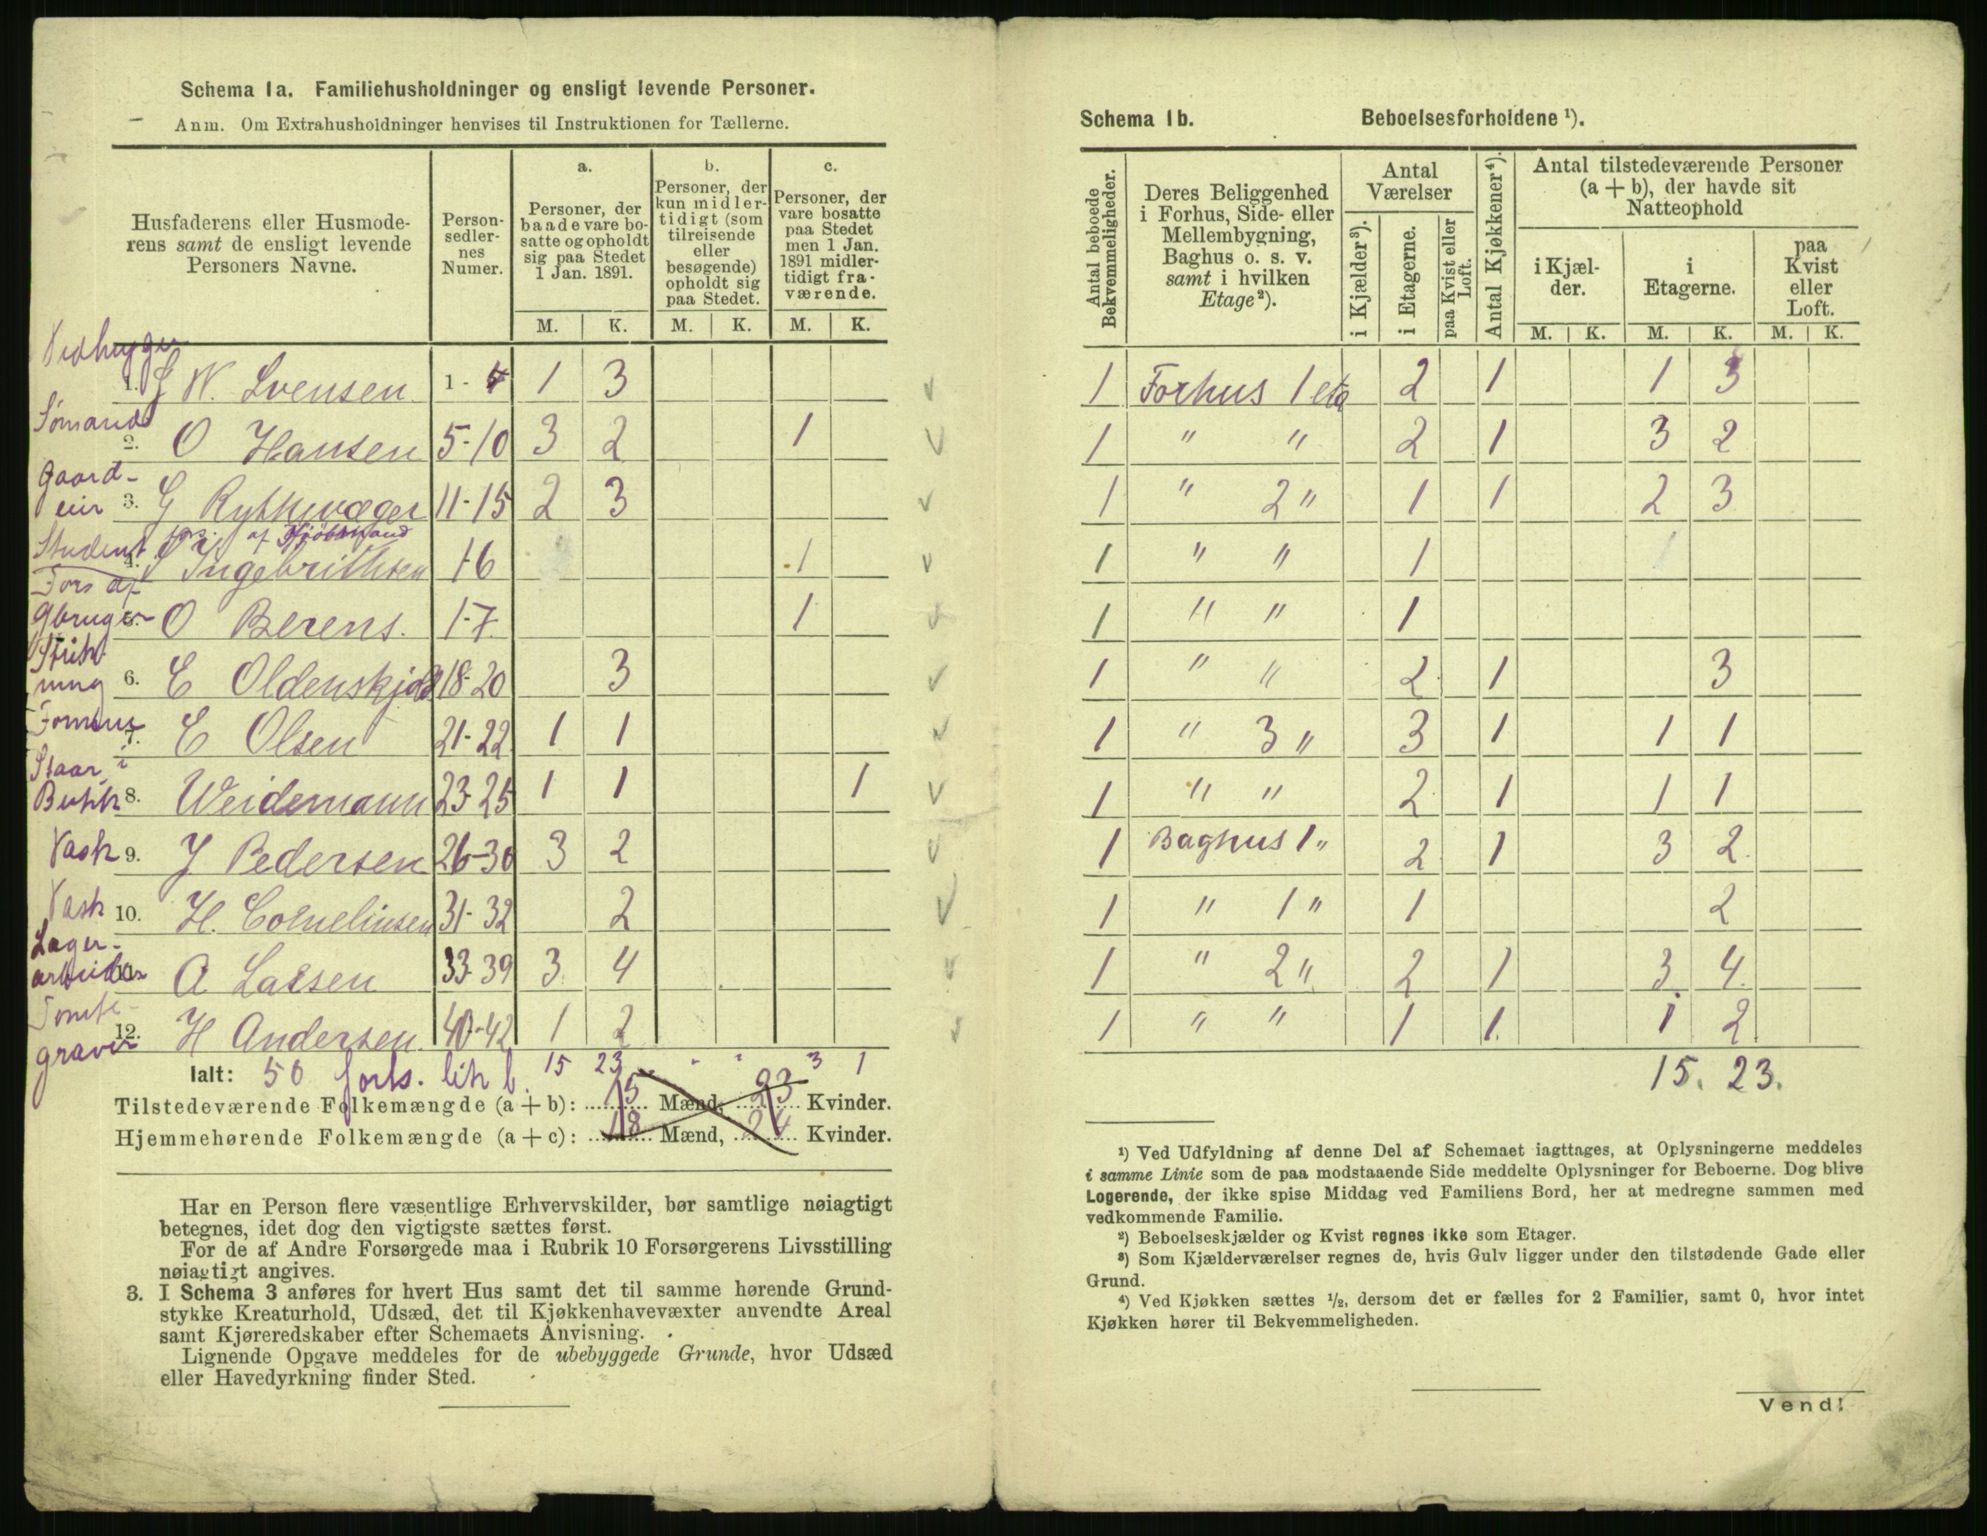 Schema 1a. Familiehusholdninger og ensligt levende Personer.
Anm. Om Extrahusholdninger henvises til Instruktionen for Tællerne.
Husfaderens eller Husmoderens samt de ensligt levende Personers Navne.
Personsedlernes Numer.
a. Personer, der baade vare bosatte og opholdt sig paa Stedet 1 Jan. 1891.
b. Personer, der kun midlertidigt (som tilreisende eller besøgende) opholdt sig paa Stedet.
c. Personer, der vare bosatte paa Stedet men 1 Jan. 1891 midlertidigt fraværende.
M. K. M. K. M. K.
Vedhugger
1. G W. Svensen 1-4 1 3
Sømand
2. O Hansen 5-10 3 2 1
Gaardeier
3. G Rytterager 11-15 2 3
Student fors. af Kjøbmand
4. Ingebrithsen 16 1
Fors af Gbruger
5. O Berens. 17. 1
Strikning
6. C Oldenskjold 18-20 3
7. C Olsen 21-22 1 1
Staar i Butik
8. Weidemann 23-25 1 1 1
Vask
9. J Pedersen 26-30 3 2
Vask
10. H. Corneliusen 31-32 2
Lagerarbeider
11. A Larsen 33-39 3 4
Tomtegraver
12. H Andersen 40-42 1 2
Ialt: 50 forts. lit b. 15 23 " " 3 1
Tilstedeværende Folkemængde (a + b): 15 Mænd, 23 Kvinder.
Hjemmehørende Folkemængde (a + c): 18 Mænd, 24 Kvinder.
Har en Person flere væsentlige Erhvervskilder, bør samtlige nøiagtigt
betegnes, idet dog den vigtigste sættes først.
For de af Andre Forsørgede maa i Rubrik 10 Forsørgerens Livsstilling
nøiagtigt angives.
3. I Schema 3 anføres for hvert Hus samt det til samme hørende Grund-
stykke Kreaturhold, Udsæd, det til Kjøkkenhavevæxter anvendte Areal
samt Kjøreredskaber efter Schemaets Anvisning.
Lignende Opgave meddeles for de ubebyggede Grunde, hvor Udsæd
eller Havedyrkning finder Sted.
Schema 1b. Beboelsesforholdene ¹).
Antal beboede Bekvemmeligheder.
Deres Beliggenhed i Forhus, Side- eller Mellembygning, Baghus o. s. v. samt i hvilken Etage ²).
Antal Værelser
i Kjælder ³).
i Etagerne.
paa Kvist eller Loft.
Antal Kjøkkener ⁴).
Antal tilstedeværende Personer (a + b), der havde sit Natteophold
i Kjælder.
i Etagerne.
paa Kvist eller Loft.
M. K. M. K. M. K.
1 Forhus 1 eta 2 1 1 3
1 " " 2 1 3 2
1 " 2 " 1 1 2 3
1 " " 1
1 " " 1
1 " " 2 1 3
1 " 3 " 3 1 1 1
1 " " 2 1 1 1
1 Baghus 1 " 2 1 3 2
1 " 1 " 1 2
1 " 2 " 2 1 3 4
1 " " 1 1 1 2
15. 23.
¹) Ved Udfyldning af denne Del af Schemaet iagttages, at Oplysningerne meddeles
i samme Linie som de paa modstaaende Side meddelte Oplysninger for Beboerne. Dog blive
Logerende, der ikke spise Middag ved Familiens Bord, her at medregne sammen med
vedkommende Familie.
²) Beboelseskjælder og Kvist regnes ikke som Etager.
³) Som Kjælderværelser regnes de, hvis Gulv ligger under den tilstødende Gade eller
Grund.
⁴) Ved Kjøkken sættes ½, dersom det er fælles for 2 Familier, samt 0, hvor intet
Kjøkken hører til Bekvemmeligheden.
Vend!